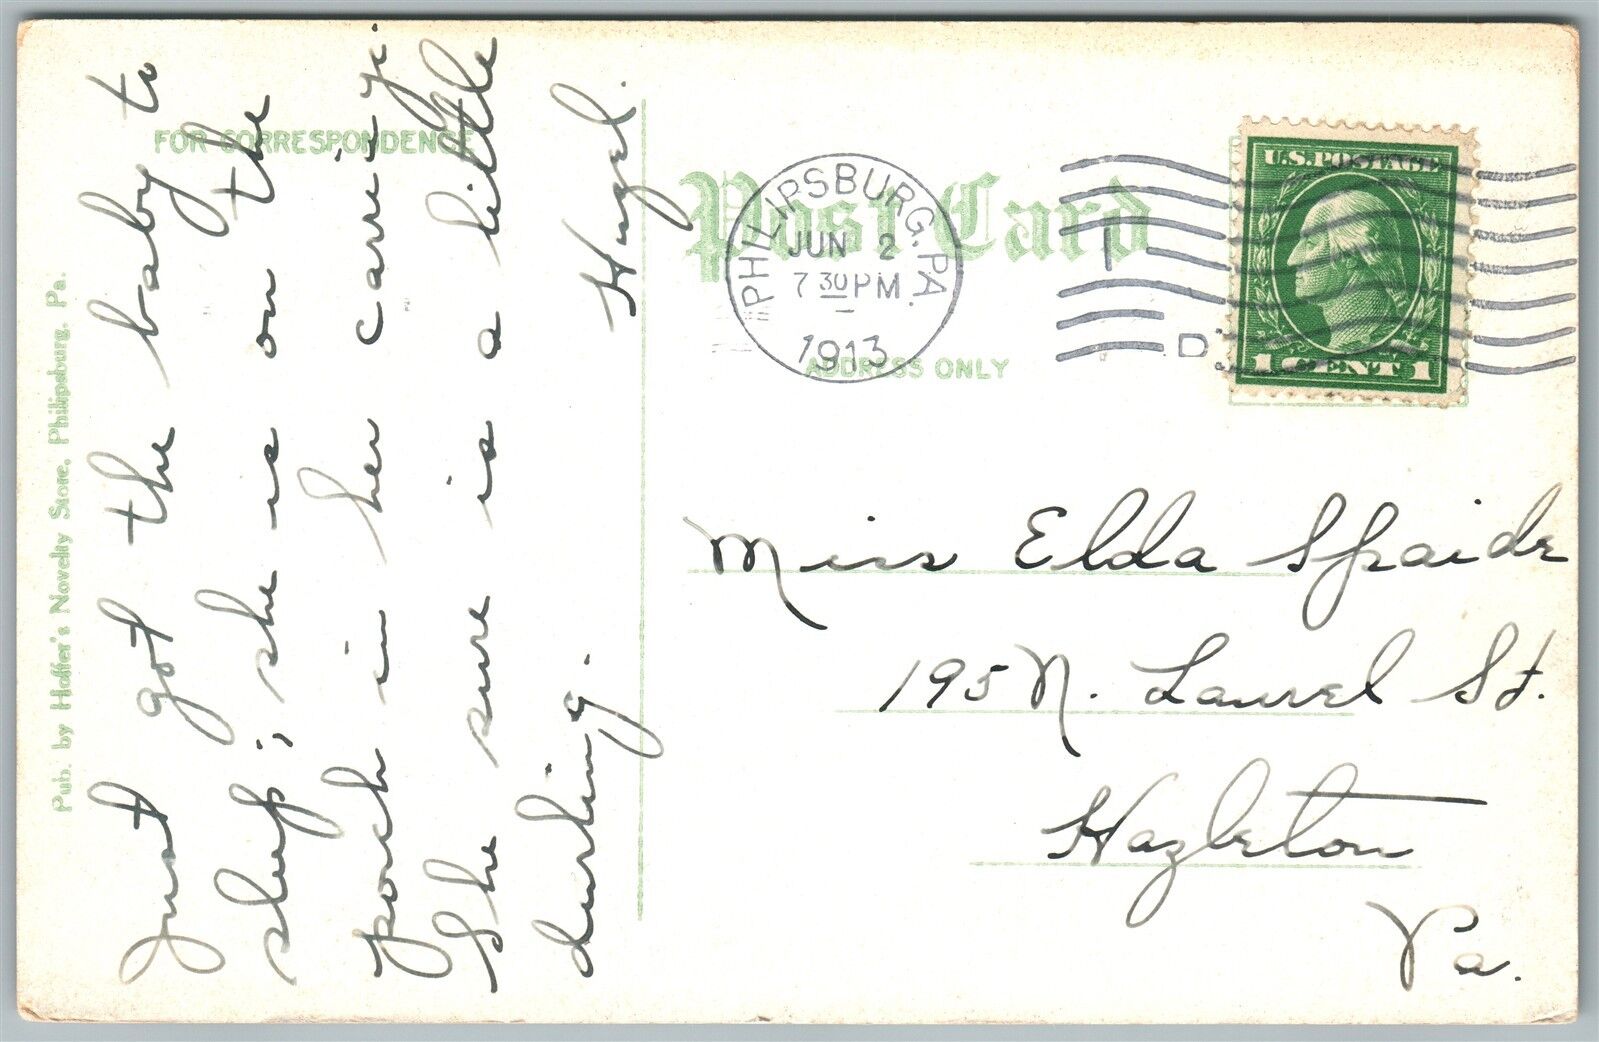 FOR CORRESPONDENCE
Just got the baby to
sleep; she is on the
porch in her carriage.
She sure is a little
durling.
Hazel.
Pub. by Hoffer's Novelty Store, Philipsburg, Pa.
Post Card
ADDRESS ONLY
PHILIPSBURG, PA.
JUN 2
7 30 PM
1913
D
U.S. POSTAGE
1 CENT 1
Miss Elda Spaide
195 N. Laurel St.
Hazleton
Pa.